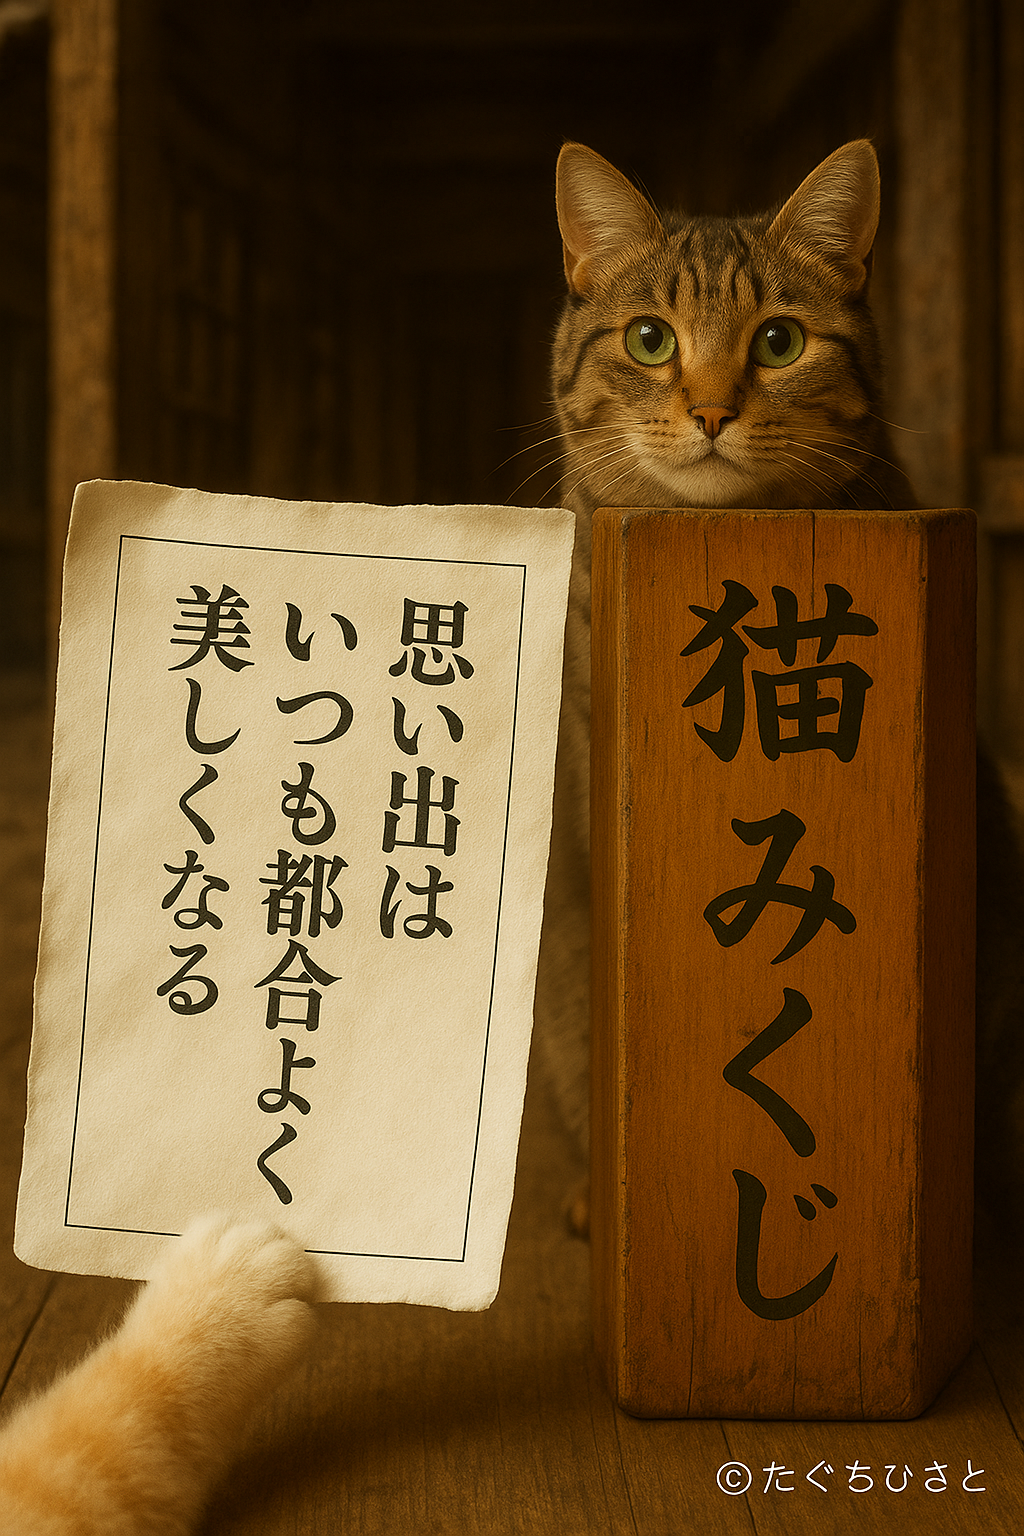 思い出は
いつも都合よく
美しくなる
猫みくじ
©たぐちひさと